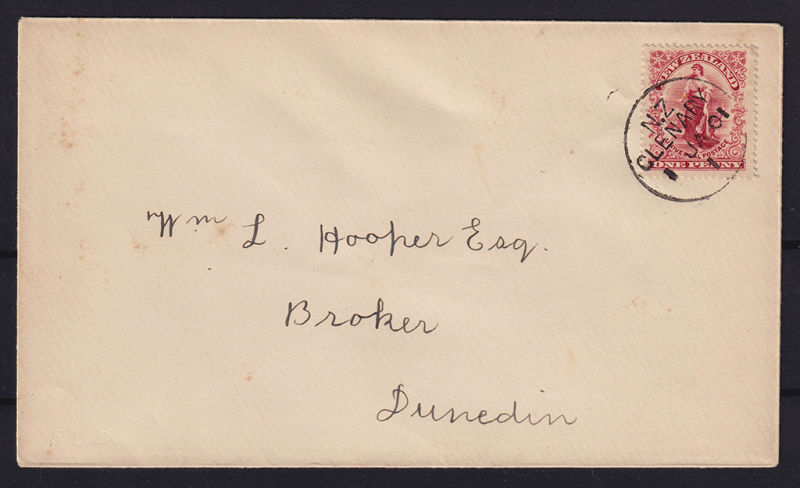 NEW ZEALAND
UNIVERSAL POSTAGE
ONE PENNY
N.Z
GLENARY
JA 01
Wm L. Hooper Esq.
Broker
Dunedin